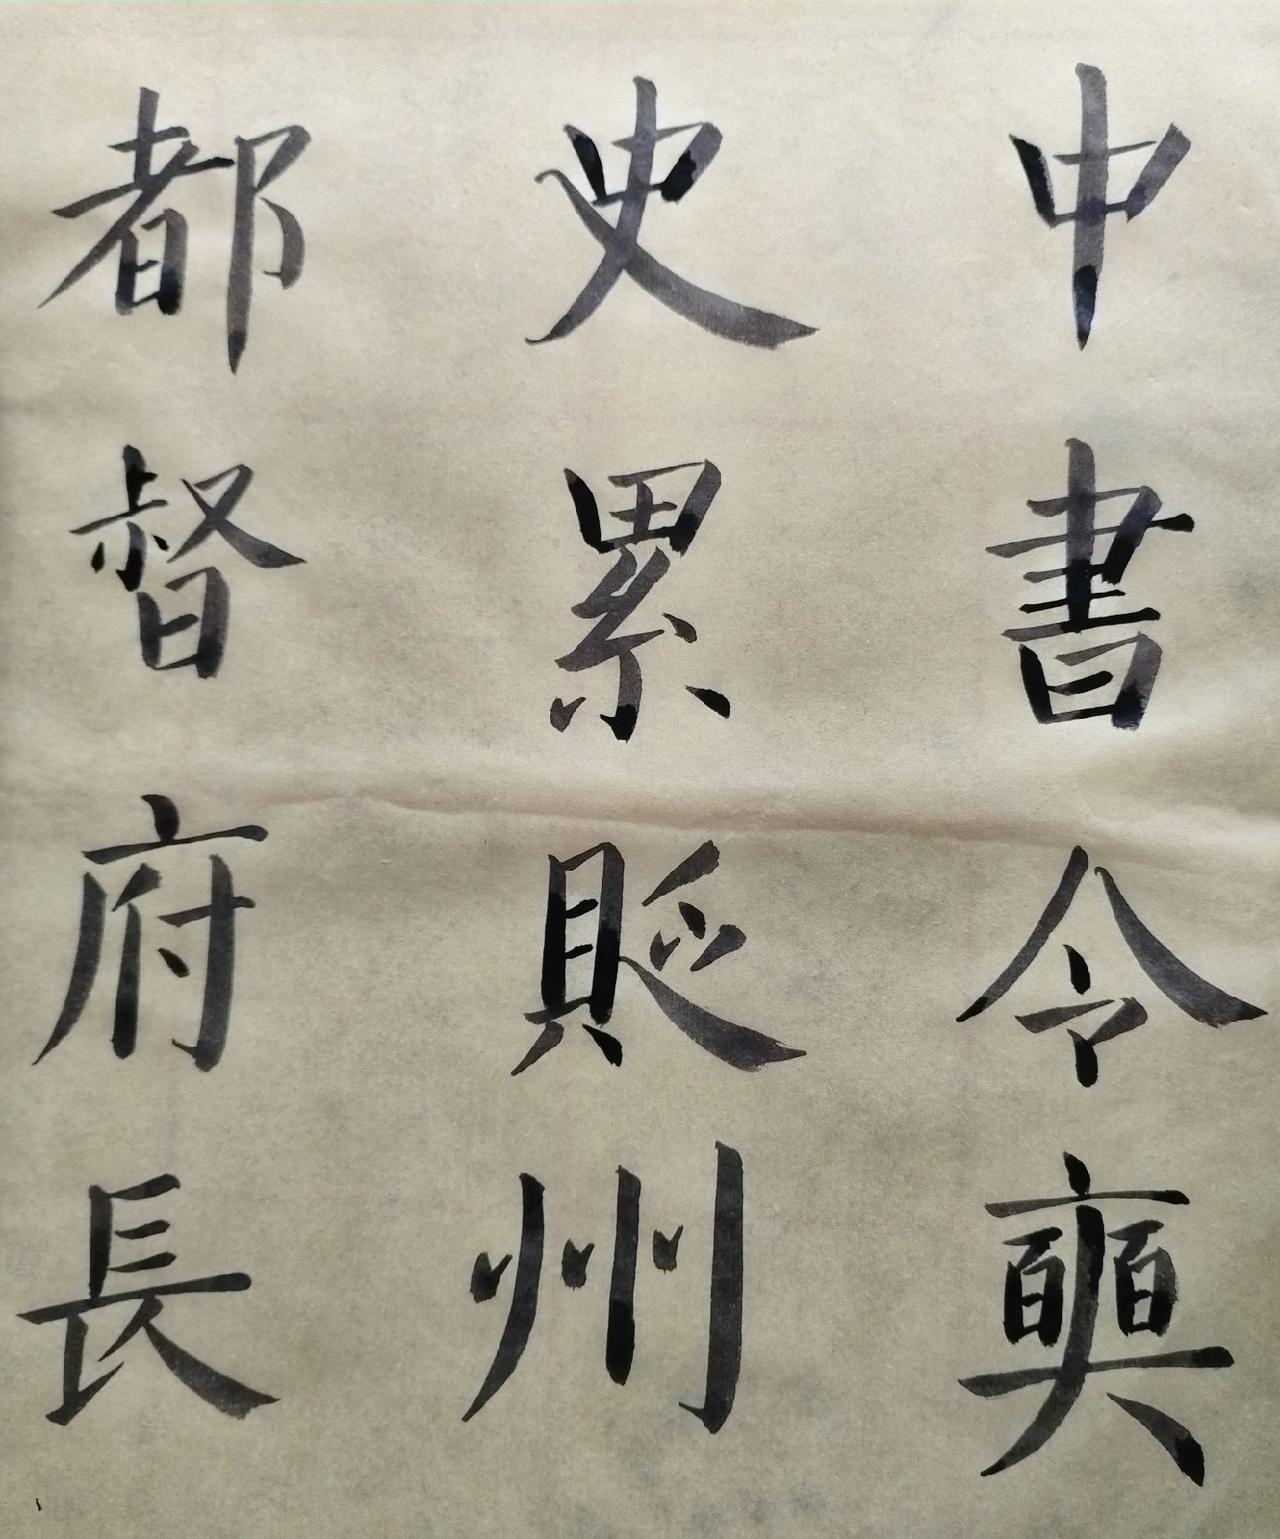 中書令奭
史累貶州
都督府長